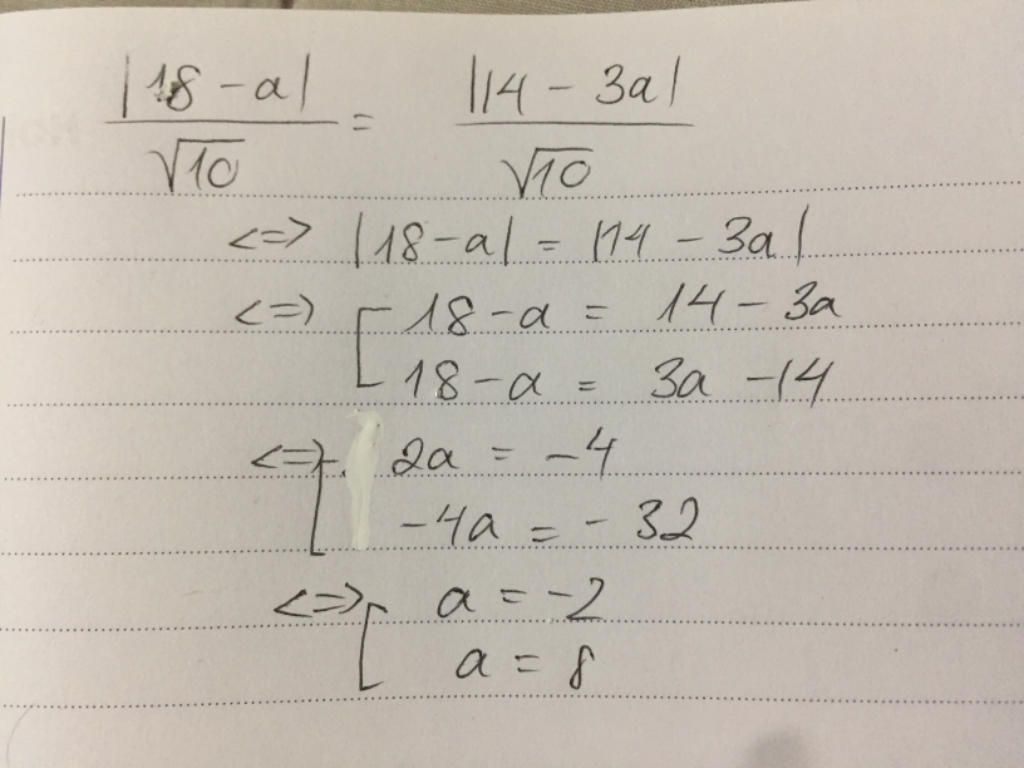 |18 - a| / √10 = |14 - 3a| / √10
<=> |18 - a| = |14 - 3a|
<=> [ 18 - a = 14 - 3a
18 - a = 3a - 14
<=> [ 2a = -4
-4a = -32
<=> [ a = -2
a = 8